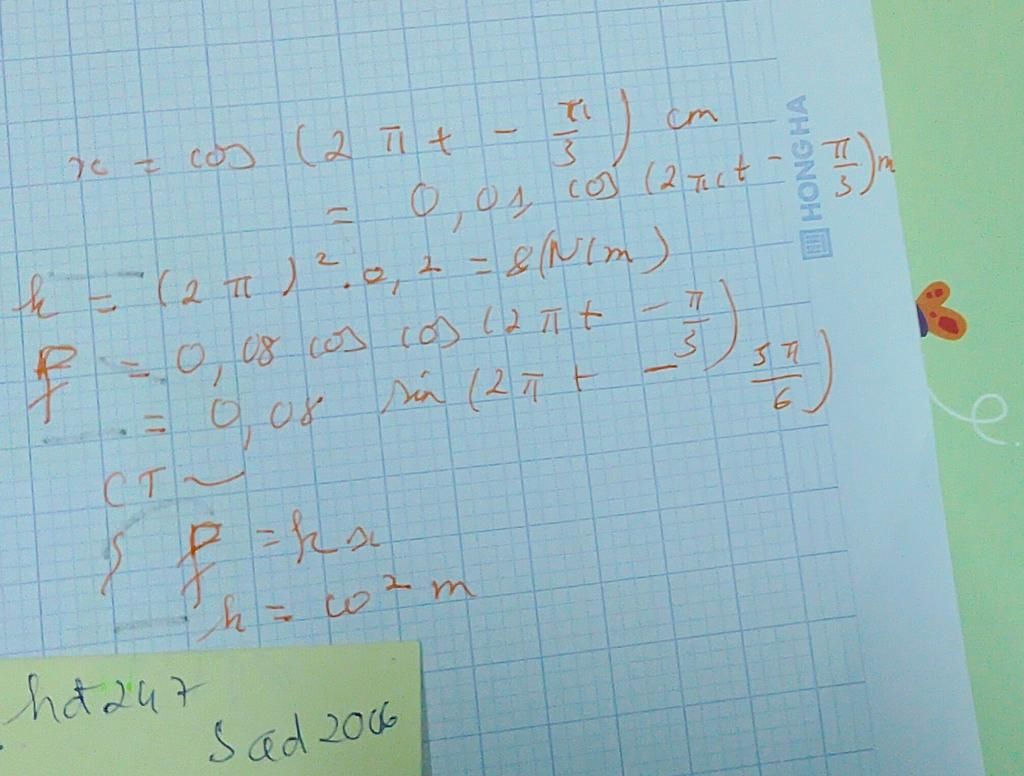 x = cos (2πt - π/3) cm
= 0,01 cos (2πt - π/3) m
k = (2π)² . 0,2 = 8 (N/m)
F = 0,08 cos cos (2πt - π/3)
= 0,08 sin (2πt - 5π/6)
CT
F = kx
k = ω² m
HONG HA
hdt247
Sad2006